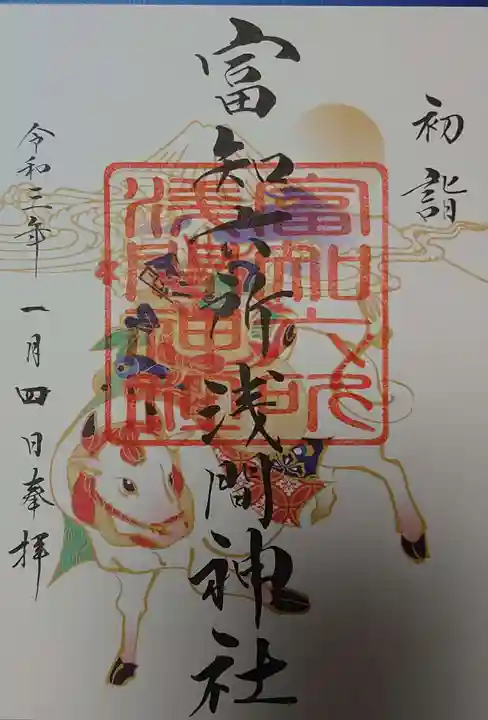 初詣
富知六所浅間神社
富知六所
浅間神社
令和三年 一月四日奉拝